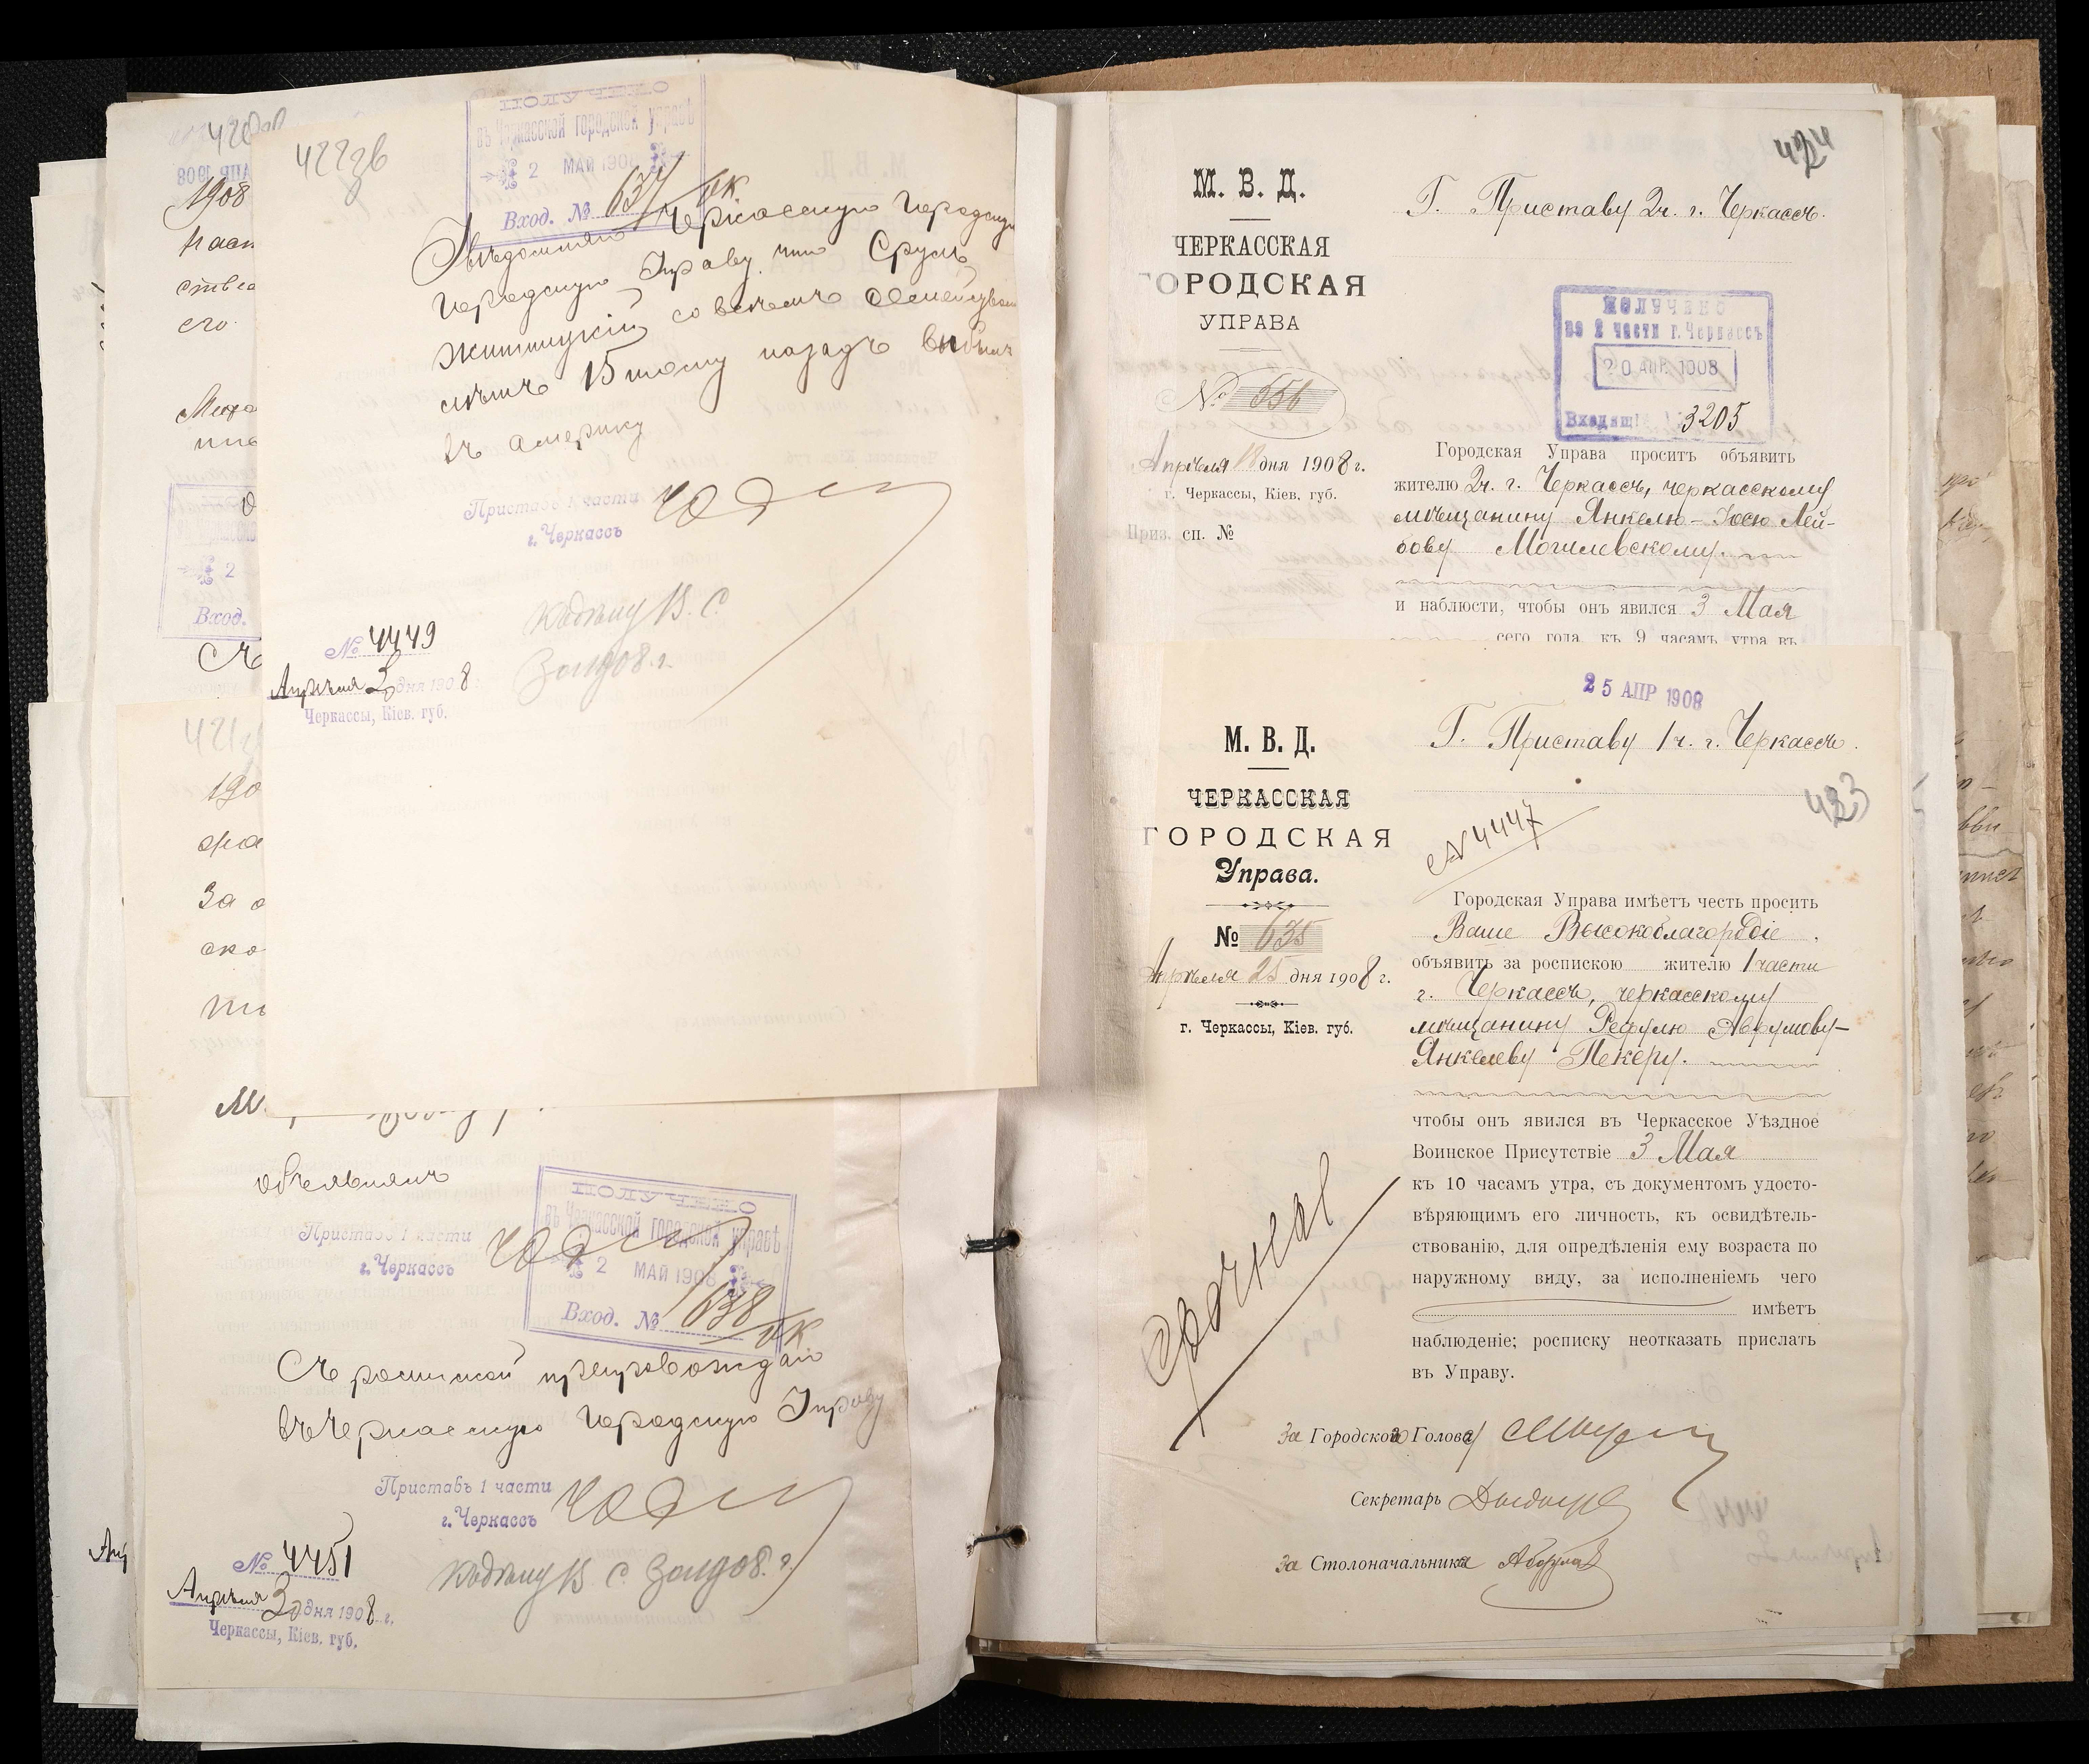 420об
1908
наст
ствсо
его
Вход.
422об
ПОЛУЧЕНО
въ Черкасской городской управѣ
2 МАЙ 1908
Вход. № 637
Увѣдомляю Черкасскую Городскую
Городскую Управу, что Сруль
Житницкій со всемъ семействомъ
лѣтъ 15 тому назадъ выбылъ
въ Америку
Приставъ 1 части
г. Черкассъ
№ 4449
Апрѣля 30 дня 1908
Черкассы, Кіев. губ.
421об
190
за о
ско
объявилъ
Приставъ 1 части
г. Черкассъ
ПОЛУЧЕНО
въ Черкасской городской управѣ
2 МАЙ 1908
Вход. № 638
Съ роспиской препровождаю
въ Черкасскую Городскую Управу
Приставъ 1 части
г. Черкассъ
№ 4451
Апрѣля 30 дня 1908 г.
Черкассы, Кіев. губ.
424
М. В. Д.
ЧЕРКАССКАЯ
ГОРОДСКАЯ
УПРАВА
№ 556
Апрѣля 18 дня 1908 г.
г. Черкассы, Кіев. губ.
Приз. сп. №
Г. Приставу 2ч. г. Черкассъ.
ПОЛУЧЕНО
во 2 части г. Черкассъ
20 АПР. 1908
Входящ. 3205
Городская Управа проситъ объявить
жителю 2ч. г. Черкассъ, черкасскому
мѣщанину Янкелю-Іосю Лей-
бову Могилевскому.
и наблюсти, чтобы онъ явился 3 Мая
сего года, къ 9 часамъ утра въ
25 АПР 1908
М. В. Д.
ЧЕРКАССКАЯ
ГОРОДСКАЯ
Управа.
№ 635
Апрѣля 25 дня 1908 г.
г. Черкассы, Кіев. губ.
Г. Приставу 1ч. г. Черкассъ.
423
№ 4447
Городская Управа имѣетъ честь просить
Ваше Высокоблагородіе
объявить за роспискою жителю 1 части
г. Черкассъ, черкасскому
мѣщанину Рефулю Аврумову-
Янкелеву Пекеру.
чтобы онъ явился въ Черкасское Уѣздное
Воинское Присутствіе 3 Мая
къ 10 часамъ утра, съ документомъ удосто-
вѣряющимъ его личность, къ освидѣтель-
ствованію, для опредѣленія ему возраста по
наружному виду, за исполненіемъ чего
имѣетъ
наблюденіе; росписку неотказать прислать
въ Управу.
Срочная
За Городского Голову
Секретарь
За Столоначальника